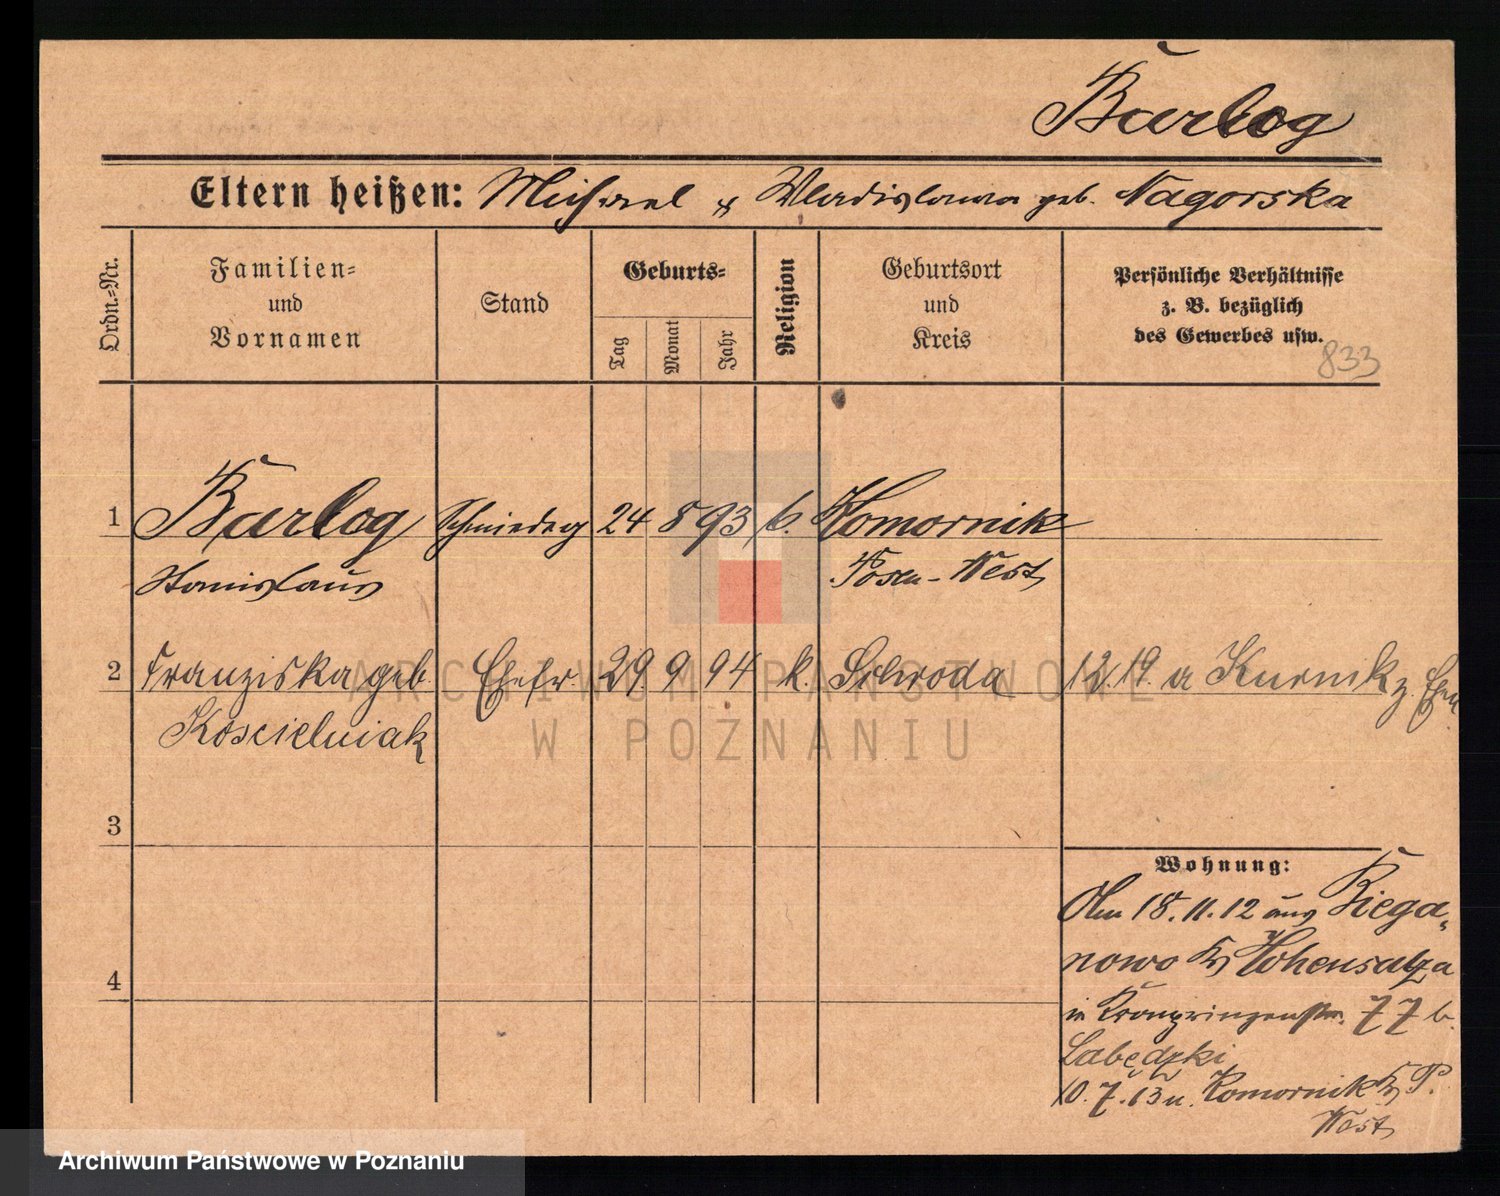 Barlog
Eltern heißen: Michael & Wladislawa geb. Nagorska
Ordn.-Nr.
Familien-
und
Vornamen
Stand
Geburts-
Tag
Monat
Jahr
Religion
Geburtsort
und
Kreis
Persönliche Verhältnisse
z. B. bezüglich
des Gewerbes usw.
833
1 Barlog Schmiedeg 24 8 93 k. Komornik
Stanislaus Posen-West
2 Franziska geb. Ehefr. 29. 9 94 k. Schroda 12. 19. a Kurnik z.
Koscielniak
3
4
Wohnung:
Am 18.11.12 aus Biega-
nowo Kr Hohensalza
in Kronprinzenstr. 77 b.
Labędzki
10.7.13 n. Komornik Kr P.
West
ARCHIWUM PAŃSTWOWE
W POZNANIU
Archiwum Państwowe w Poznaniu